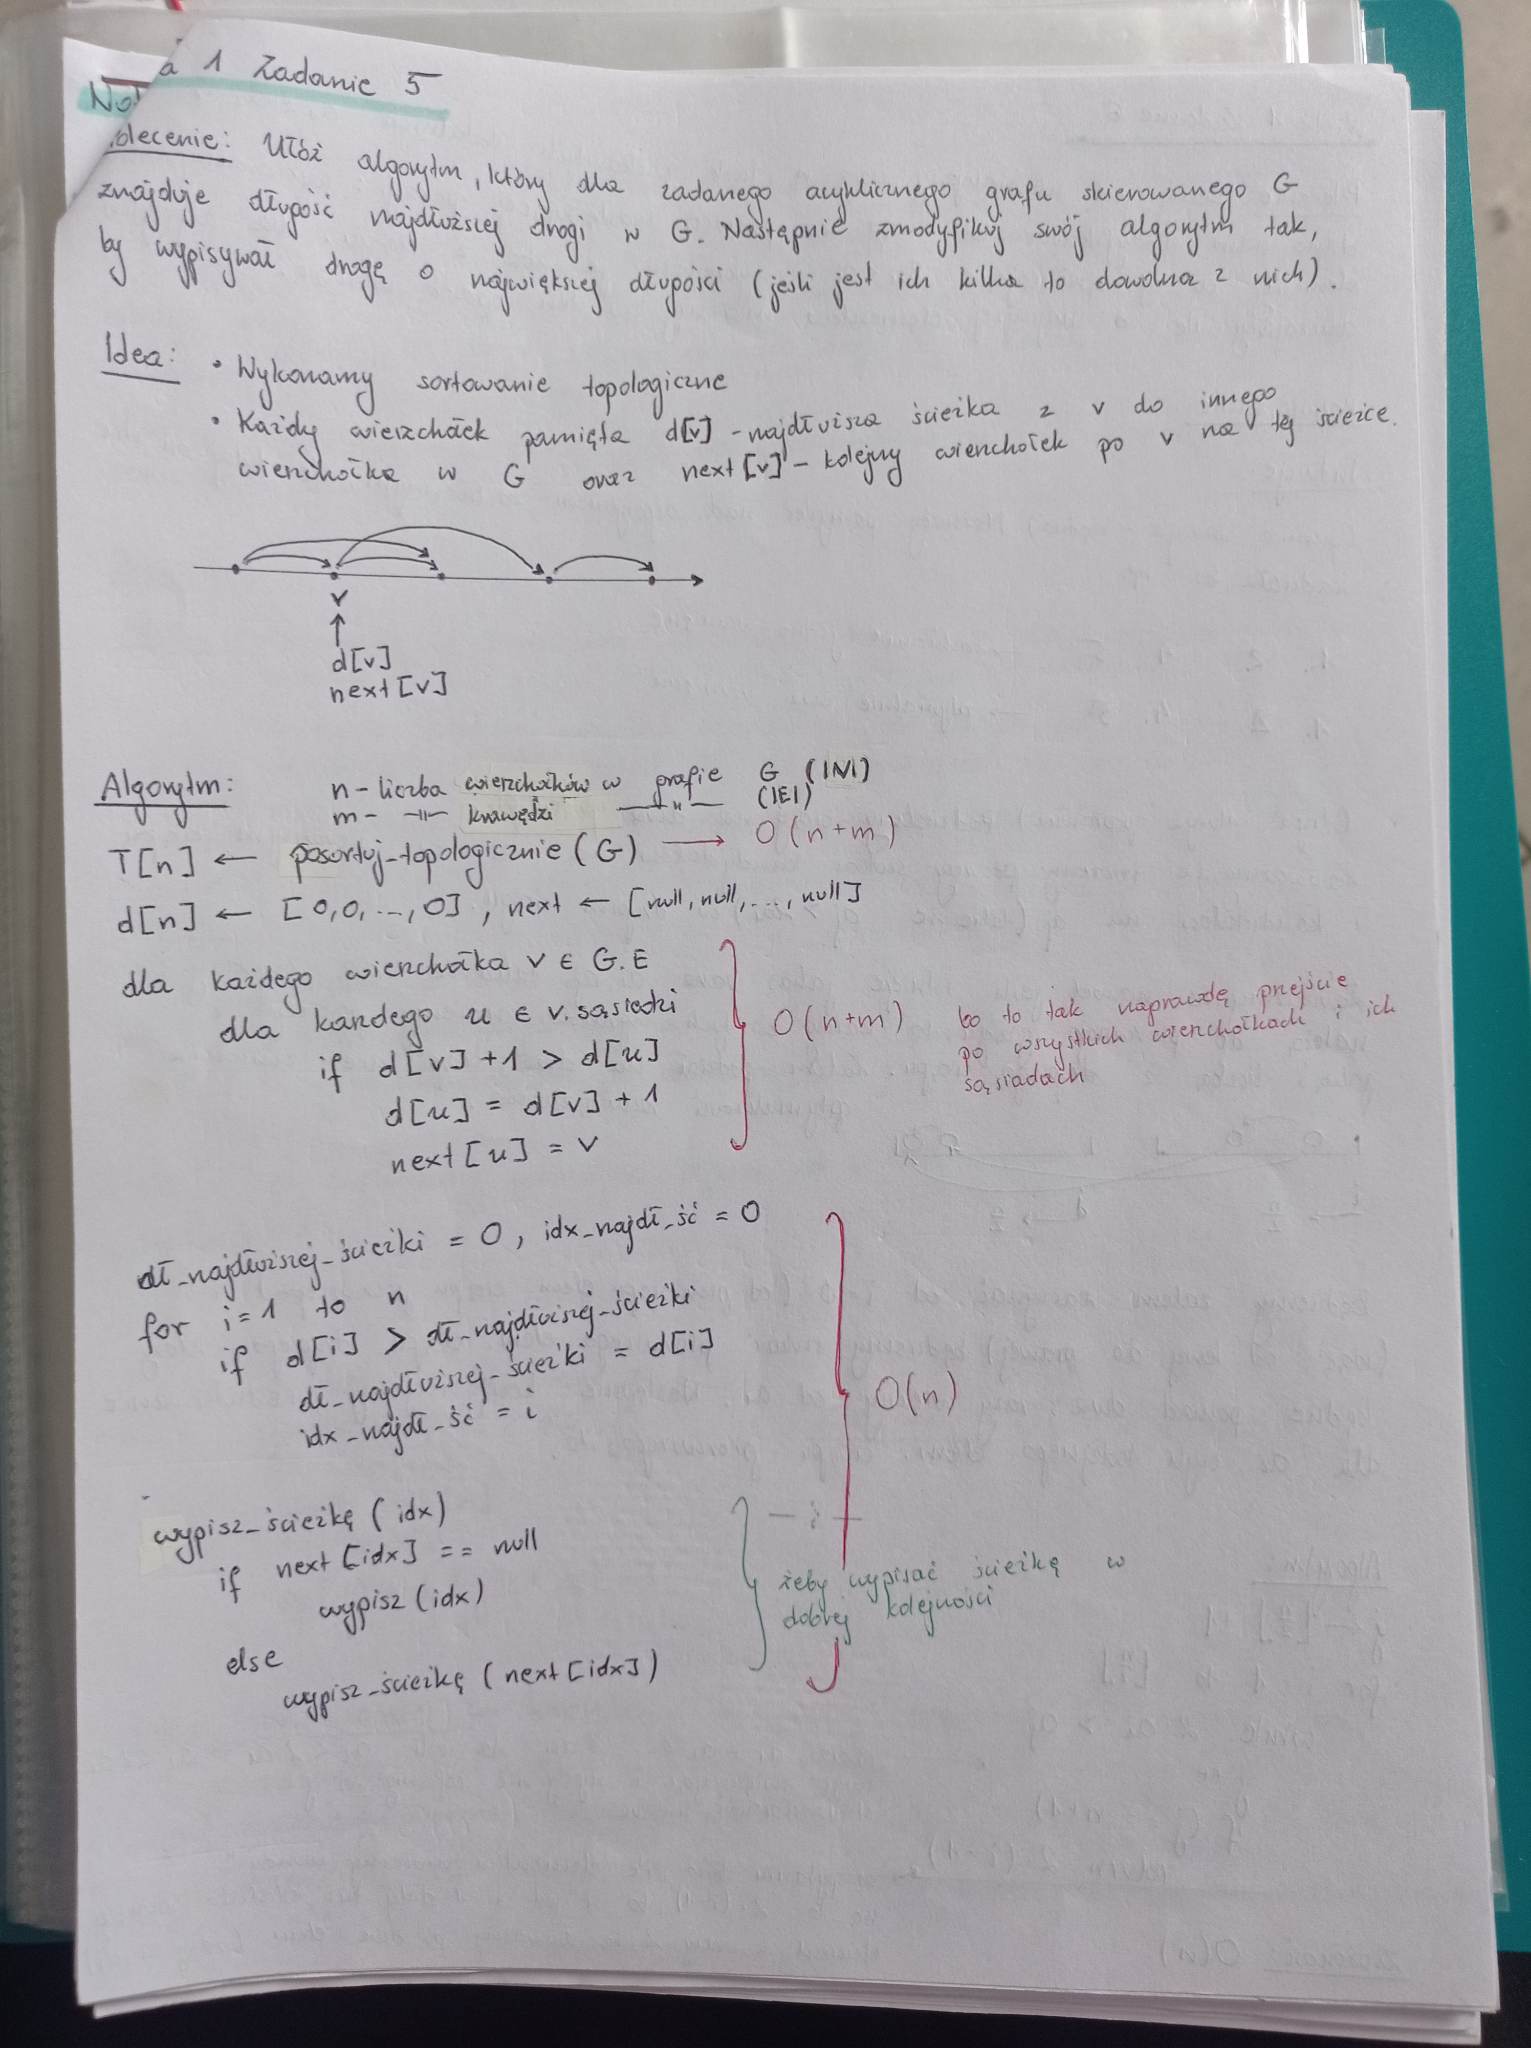 a 1 Zadanie 5
olecenie: Ułóż algorytm, który dla zadanego acyklicznego grafu skierowanego G
znajduje długość najdłuższej drogi w G. Następnie zmodyfikuj swój algorytm tak,
by wypisywał drogę o największej długości (jeśli jest ich kilka to dowolna z nich).
Idea: • Wykonamy sortowanie topologiczne
• Każdy wierzchołek pamięta d[v] - najdłuższa ścieżka z v do innego
wierzchołka w G oraz next[v] - kolejny wierzchołek po v na tej ścieżce.
v
d[v]
next[v]
Algorytm: n - liczba wierzchołków w grafie G (|V|)
m - -||- krawędzi -"- (|E|)
T[n] ← posortuj_topologicznie(G) → O(n+m)
d[n] ← [0,0,...,0], next ← [null, null, ..., null]
dla każdego wierzchołka v ∈ G.E
dla każdego u ∈ v.sąsiedzi
if d[v]+1 > d[u]
d[u] = d[v]+1
next[u] = v
O(n+m) bo to tak naprawdę przejście
po wszystkich wierzchołkach i ich
sąsiadach
dł_najdłuższej_ścieżki = 0, idx_najdł_ść = 0
for i=1 to n
if d[i] > dł_najdłuższej_ścieżki
dł_najdłuższej_ścieżki = d[i]
idx_najdł_ść = i
O(n)
wypisz_ścieżkę(idx)
if next[idx] == null
wypisz(idx)
else
wypisz_ścieżkę(next[idx])
żeby wypisać ścieżkę w
dobrej kolejności